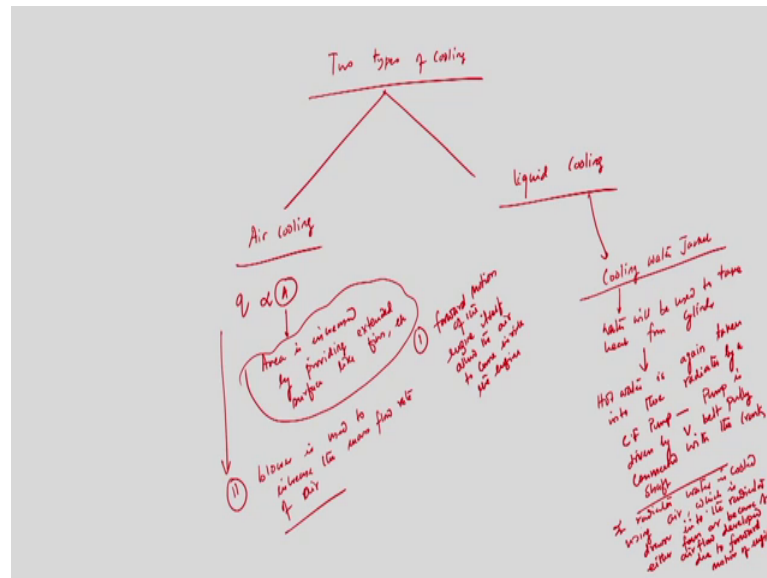 Two types of Cooling
Air Cooling
q ∝ A
Area is increased
by providing extended
surface like fins, etc
I
forward motion
of the
engine itself
allow the air
to come inside
the engine
II
blower is used to
increase the mass flow rate
of air
liquid cooling
Cooling water Jacket
water will be used to take
heat from cylinder
Hot water is again taken
into the radiator by a
C.F Pump — Pump is
driven by V belt pully
connected with the crank
shaft
radiator water is cooled
using air which is
drawn into the radiator
either fan or because of
airflow developed
due to forward
motion of engine